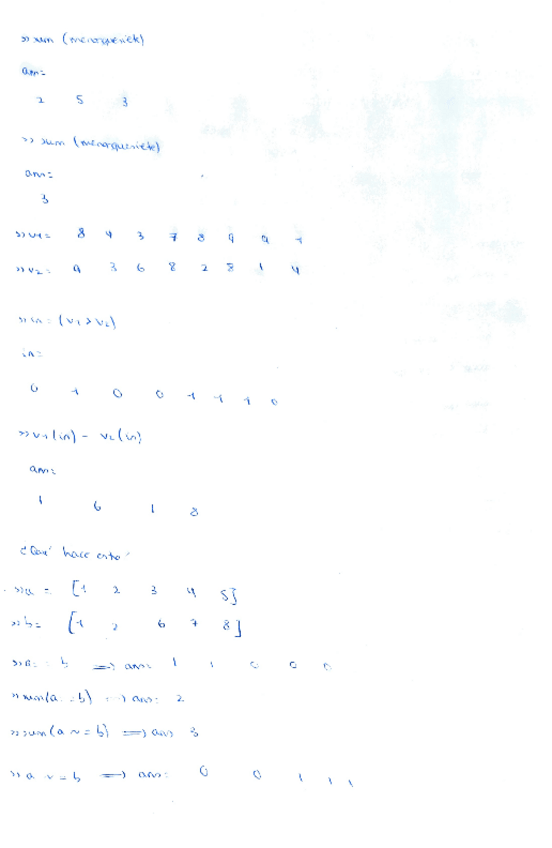 >> sum (menorquesietek)
ans=
2 5 3
>> sum (menorquesiete)
ans=
3
>> v1= 8 4 3 7 8 9 9 1
>> v2= 9 3 6 8 2 8 1 4
>> in= (v1 > v2)
in=
0 1 0 0 1 1 1 0
>> v1(in) - v2(in)
ans=
1 6 1 8
¿Qué hace esto
>> a = [1 2 3 4 5]
>> b= [1 2 6 7 8]
>> a==b => ans= 1 1 0 0 0
>> sum(a==b) => ans= 2
>> sum(a ~= b) => ans 3
>> a ~= b => ans= 0 0 1 1 1